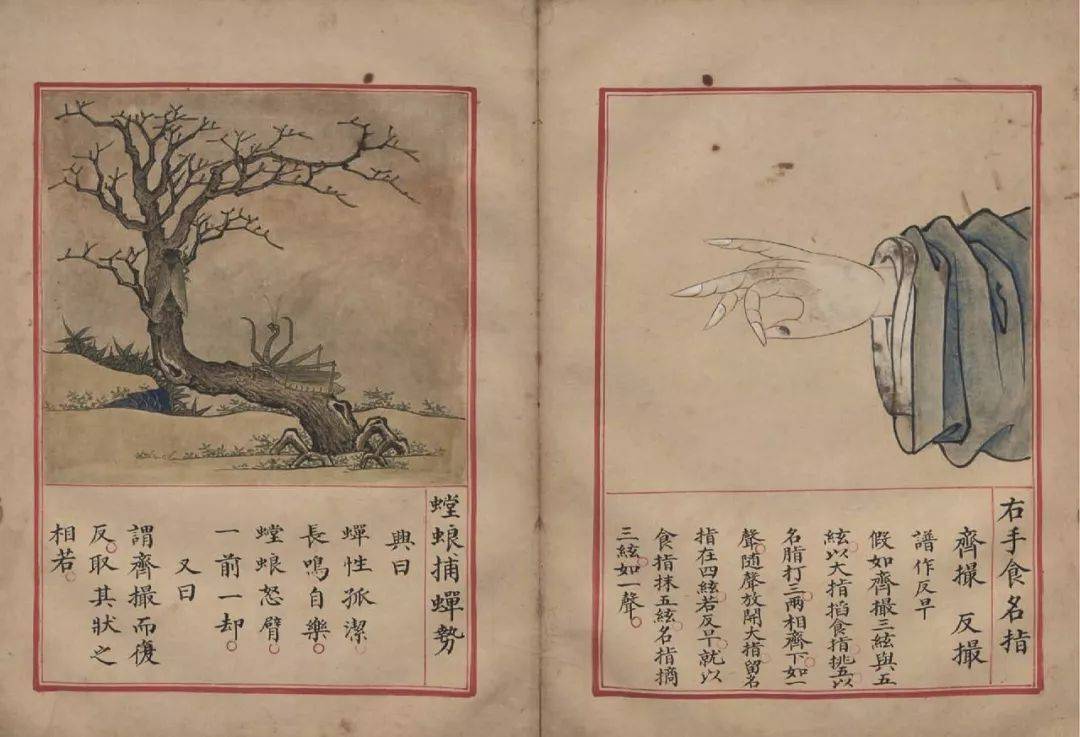 右手食名指
齊撮 反撮
譜作反早
假如齊撮三絃與五
絃以大指掐食指挑五以
名脂打三兩相齊下如一
聲随聲放開大指留名
指在四絃若反早就以
食指抹五絃名指摘
三絃如一聲
螳蜋捕蟬勢
興曰
蟬性孤潔
長鳴自樂
螳蜋怒臂
一前一却
又曰
謂齊撮而復
反取其狀之
相若